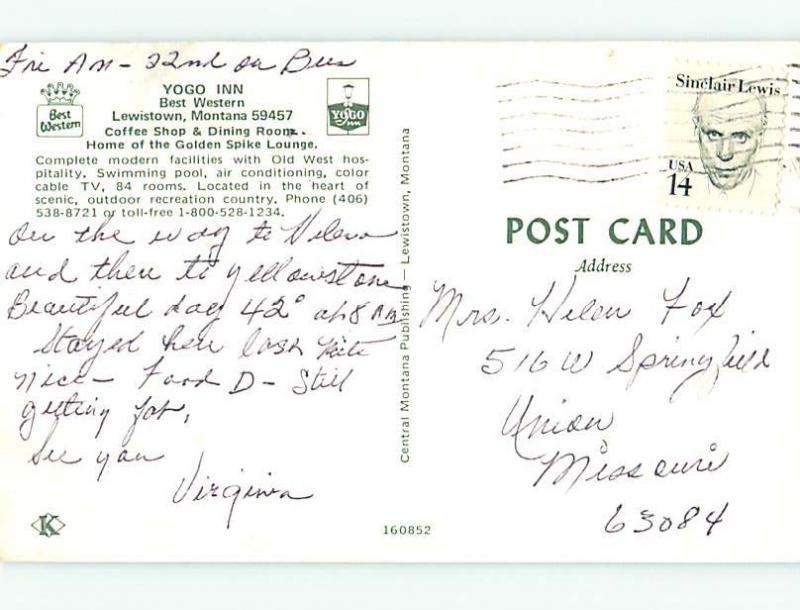 Fri AM - 22nd on Bus
YOGO INN
Best Western
Lewistown, Montana 59457
Coffee Shop & Dining Room.
Home of the Golden Spike Lounge.
Complete modern facilities with Old West hos-
pitality. Swimming pool, air conditioning, color
cable TV, 84 rooms. Located in the heart of
scenic, outdoor recreation country. Phone (406)
538-8721 or toll-free 1-800-528-1234.
Best
Western
YOGO
Inn
on the way to Helena
and then to Yellowstone
Beautiful day 42° at 8 AM
Stayed here last nite
nice - Food D - Still
getting fat,
See you
Virginia
K
Central Montana Publishing — Lewistown, Montana
160852
Sinclair Lewis
USA
14
POST CARD
Address
Mrs. Helen Fox
516 W Springfield
Union
Missouri
63084